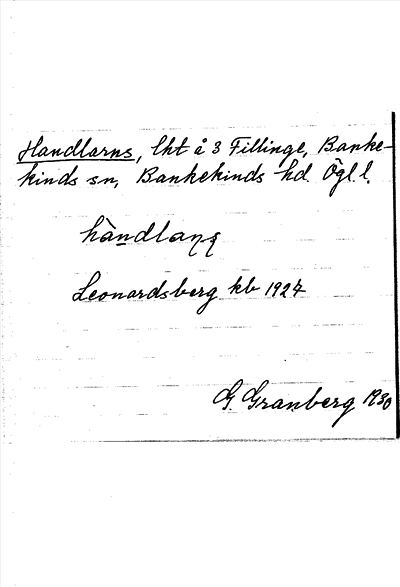 Handlarns, lht å 3 Fillinge, Banke-
kinds sn, Bankekinds hd. Ögl l.
hàndlaṇṣ
Leonardsberg kb 1927
G. Granberg 1930